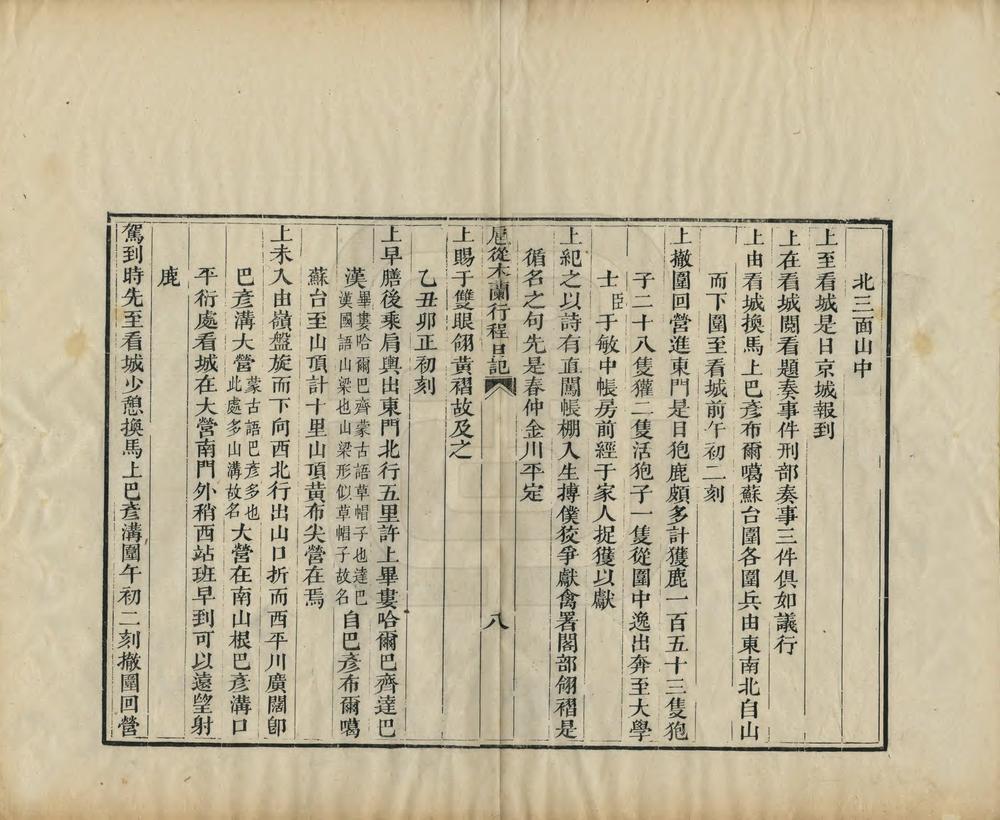 北三面山中
上至看城是日京城報到
上在看城閱看題奏事件刑部奏事三件俱如議行
上由看城換馬上巴彥布爾噶蘇台圍各圍兵由東南北自山
而下圍至看城前午初二刻
上撤圍回營進東門是日狍鹿頗多計獲鹿一百五十三隻狍
子二十八隻獾二隻活狍子一隻從圍中逸出奔至大學
士臣于敏中帳房前經于家人捉獲以獻
上紀之以詩有直闖帳棚入生搏僕狡爭獻禽署閣部翎褶是
循名之句先是春仲金川平定
上賜于雙眼翎黃褶故及之
扈從木蘭行程日記
八
乙丑卯正初刻
上早膳後乘肩輿出東門北行五里許上畢婁哈爾巴齊達巴
漢畢婁哈爾巴齊蒙古語草帽子也達巴漢國語山梁也山梁形似草帽子故名自巴彥布爾噶
蘇台至山頂計十里山頂黃布尖營在焉
上未入由嶺盤旋而下向西北行出山口折而西平川廣闊卽
巴彥溝大營蒙古語巴彥多也此處多山溝故名大營在南山根巴彥溝口
平衍處看城在大營南門外稍西站班早到可以遠望射
鹿
駕到時先至看城少憩換馬上巴彥溝圍午初二刻撤圍回營